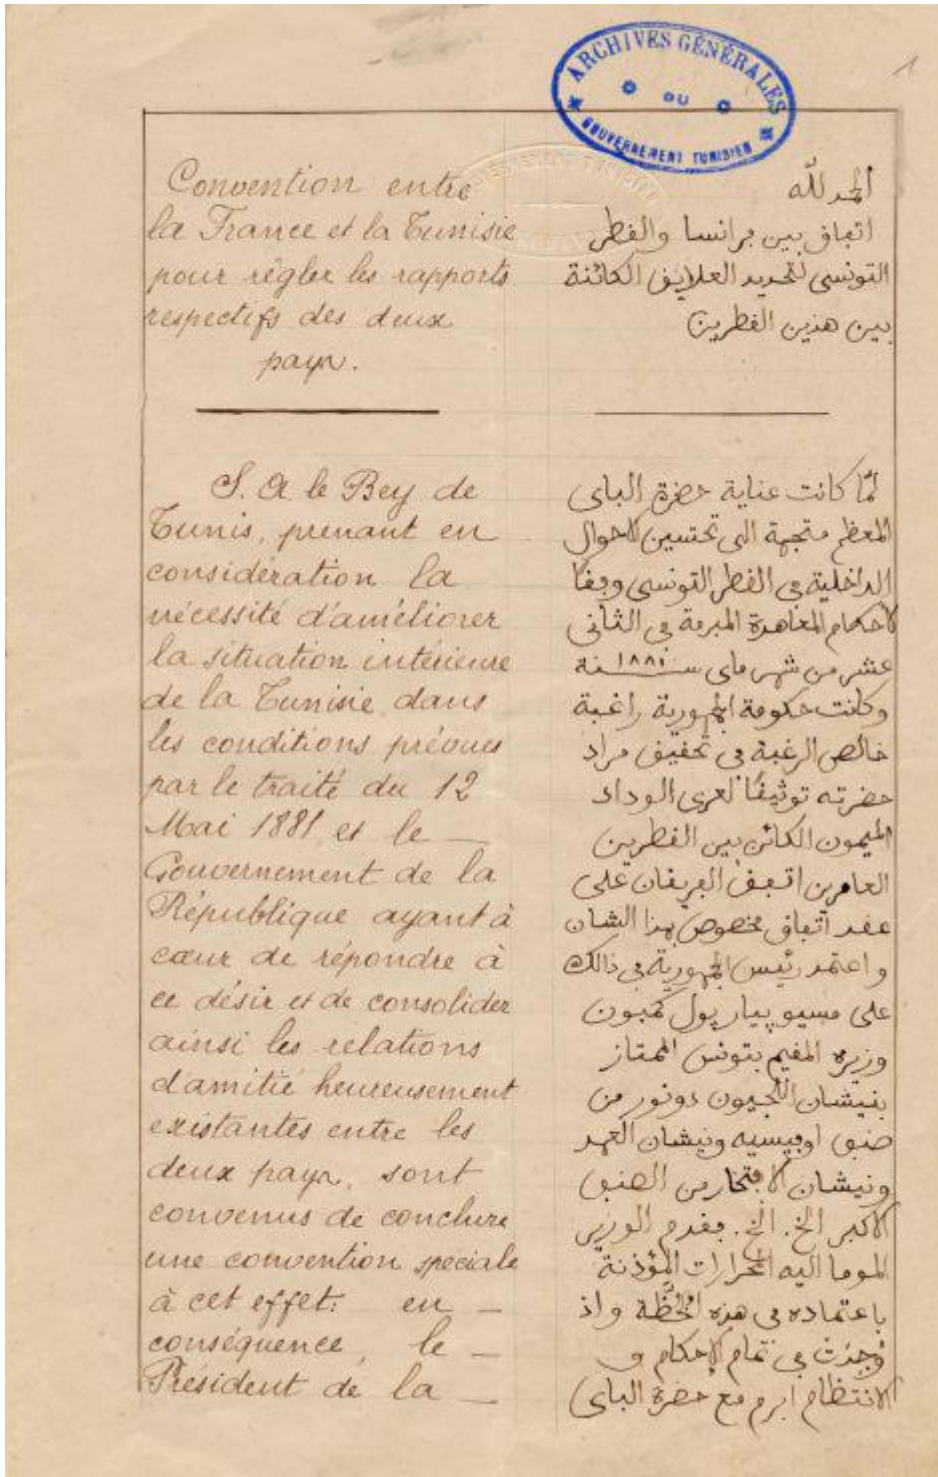 ARCHIVES GÉNÉRALES
DU
GOUVERNEMENT TUNISIEN
1
Convention entre
la France et la Tunisie
pour régler les rapports
respectifs des deux
pays.
S. A. le Bey de
Tunis, prenant en
considération la
nécessité d'améliorer
la situation intérieure
de la Tunisie dans
les conditions prévues
par le traité du 12
Mai 1881 et le
Gouvernement de la
République ayant à
cœur de répondre à
ce désir et de consolider
ainsi les relations
d'amitié heureusement
existantes entre les
deux pays, sont
convenus de conclure
une convention spéciale
à cet effet: en
conséquence, le
Président de la
الحمد لله
اتفاق بين فرانسا والقطر
التونسي لتحديد العلايق الكائنة
بين هذين القطرين
لمّا كانت عناية حضرة الباي
المعظم متجهة الى تحسين الاحوال
الداخلية في القطر التونسي وفقا
لاحكام المعاهدة المبرمة في الثاني
عشر من شهر ماي سنة ١٨٨١
وكانت حكومة الجمهورية راغبة
خالص الرغبة في تحقيق مراد
حضرته توثيقًا لعرى الوداد
الميمون الكائن بين القطرين
العامرين اتفق الفريقان على
عقد اتفاق مخصوص بهذا الشان
واعتمد رئيس الجمهورية في ذالك
على مسيو پيار پول كمبون
وزيره المقيم بتونس الممتاز
بنيشان اللجيون دونور من
صنف اوفيسيه ونيشان العهد
ونيشان الافتخار من الصنف
الاكبر الخ. الخ. فقدم الوزير
الموما اليه المحرارات المؤذنة
باعتماده في هذه الخطّة واذ
وُجدت في تمام الاحكام و
الانتظام ابرم مع حضرة الباي